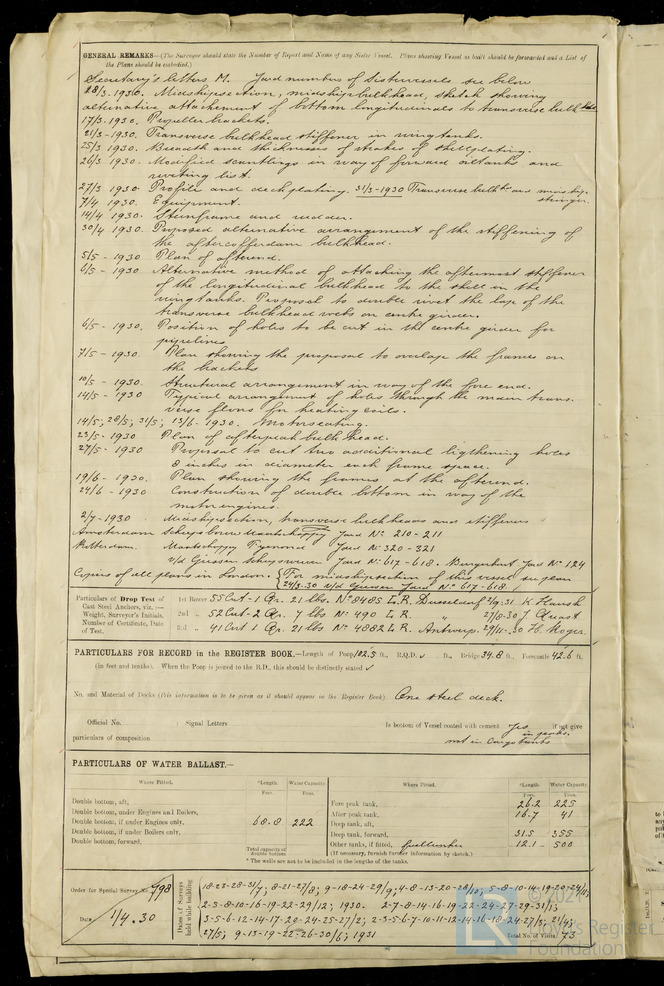 GENERAL REMARKS—(The Surveyor should state the Number of Report and Name of any Sister Vessel. Plans showing Vessel as built should be forwarded and a List of
the Plans should be embodied.)
Secretary's letters M. Yard number of sistervessels see below
28/3.1930. Midshipsection, midshipbulkhead, sketch showing
alternative attachement of bottom longitudinals to transverse bulkheads
17/3.1930. Propeller brackets.
21/3-1930. Transverse bulkhead stiffener in wingtanks.
25/3 1930. Breadth and thicknesses of strakes of shellplating.
26/3 1930. Modified scantlings in way of forward oiltanks and
riveting list.
27/3 1930. Profile and deckplating. 31/3-1930 Transverse bulkhds and midship
stringer.
7/4 1930. Equipment.
14/4 1930. Sternframe and rudder.
30/4 1930. Proposed alternative arrangement of the stiffening of
the aftercofferdam bulkhead.
5/5 - 1930 Plan of afterend.
6/5 - 1930. Alternative method of attaching the aftermost stiffener
of the longitudinal bulkhead to the shell in the
wingtanks. Proposal to double rivet the lap of the
transverse bulkhead webs on centre girder.
6/5 - 1930. Position of holes to be cut in the centre girder for
pipelines.
7/5 - 1930. Plan showing the proposal to overlap the frames on
the brackets
10/5 - 1930. Structural arrangement in way of the fore end.
14/5 - 1930 Typical arrangement of holes through the main trans-
verse floors for heating coils.
14/5; 28/5; 31/5; 13/6-1930. Motorseating.
23/5-1930 Plan of afterpeak bulkhead.
27/5 - 1930 Proposal to cut two additional ligthening holes
8 inches in diameter each frame space.
19/6 - 1930. Plan showing the frames at the afterend.
24/6 - 1930 Construction of double bottom in way of the
motorengines.
2/7-1930 Midshipsection, transverse bulkheads and stiffeners
Amsterdam Scheepsbouw Maatschappy Yard No 210-211
Rotterdam. Maatschappy Fyenoord Yard No 320-321
v/d Giessen Scheepswerven Yard No 617-618. Burgerhout Yard No 124
Copies of all plans in London. {For midshipsection of this vessel see plan
24/3.30 v/d Giessen Yard No 617-618}
Particulars of Drop Test of
Cast Steel Anchors, viz.:—
Weight, Surveyor's Initials,
Number of Certificate, Date
of Test.
1st Bower 55 Cwt-1 Qr. 21 lbs. No 8485 L.R. Dusseldorf
2nd " 52 Cwt-2 Qr. 7 lbs No 490 L.R. " 27/8-30
3rd " 41 Cwt 1 Qr. 21 lbs No 4882 L.R. Antwerp. 27/11-30
PARTICULARS FOR RECORD in the REGISTER BOOK.—Length of Poop 102.5 ft., R.Q.D. ✓ ft., Bridge 34.8 ft., Forecastle 42.6 ft.
(in feet and tenths). When the Poop is joined to the B.D., this should be distinctly stated ✓
No. and Material of Decks (this information is to be given as it should appear in the Register Book) One steel deck.
Official No. ; Signal Letters Is bottom of Vessel coated with cement Yes if not give
in peaks.
particulars of composition not in Cargotanks
PARTICULARS OF WATER BALLAST.—
Where Fitted. *Length. Water Capacity
Feet. Tons.
Double bottom, aft,
Double bottom, under Engines and Boilers,
Double bottom, if under Engines only, 68.8 222
Double bottom, if under Boilers only,
Double bottom, forward,
Total capacity of double bottom
Where Fitted. *Length. Water Capacity
Feet. Tons.
Fore peak tank, 26.2 225
After peak tank, 16.7 41
Deep tank, aft,
Deep tank, forward, 31.5 355
Other tanks, if fitted, fuelbunker 12.1 - 500
(If necessary, furnish further information by sketch.)
* The wells are not to be included in the lengths of the tanks.
Order for Special Survey No. 798
Date 1/4.30
Dates of Surveys held while building
18-22-28-31/7; 8-21-27/8; 9-18-24-29/9; 4-8-13-20-28/10; 5-8-10-14-19-20-24/11;
2-3-8-10-16-19-22-29/12; 1930. 2-7-8-14-16-19-22-24-27-29-31/1;
3-5-6-12-14-17-20-24-25-27/2; 2-3-5-6-7-10-11-12-14-16-18-24-27/3; 21/4;
27/5; 9-13-19-22-26-30/6; 1931
Total No. of Visits 73
© 2021
Lloyd's Register
Foundation